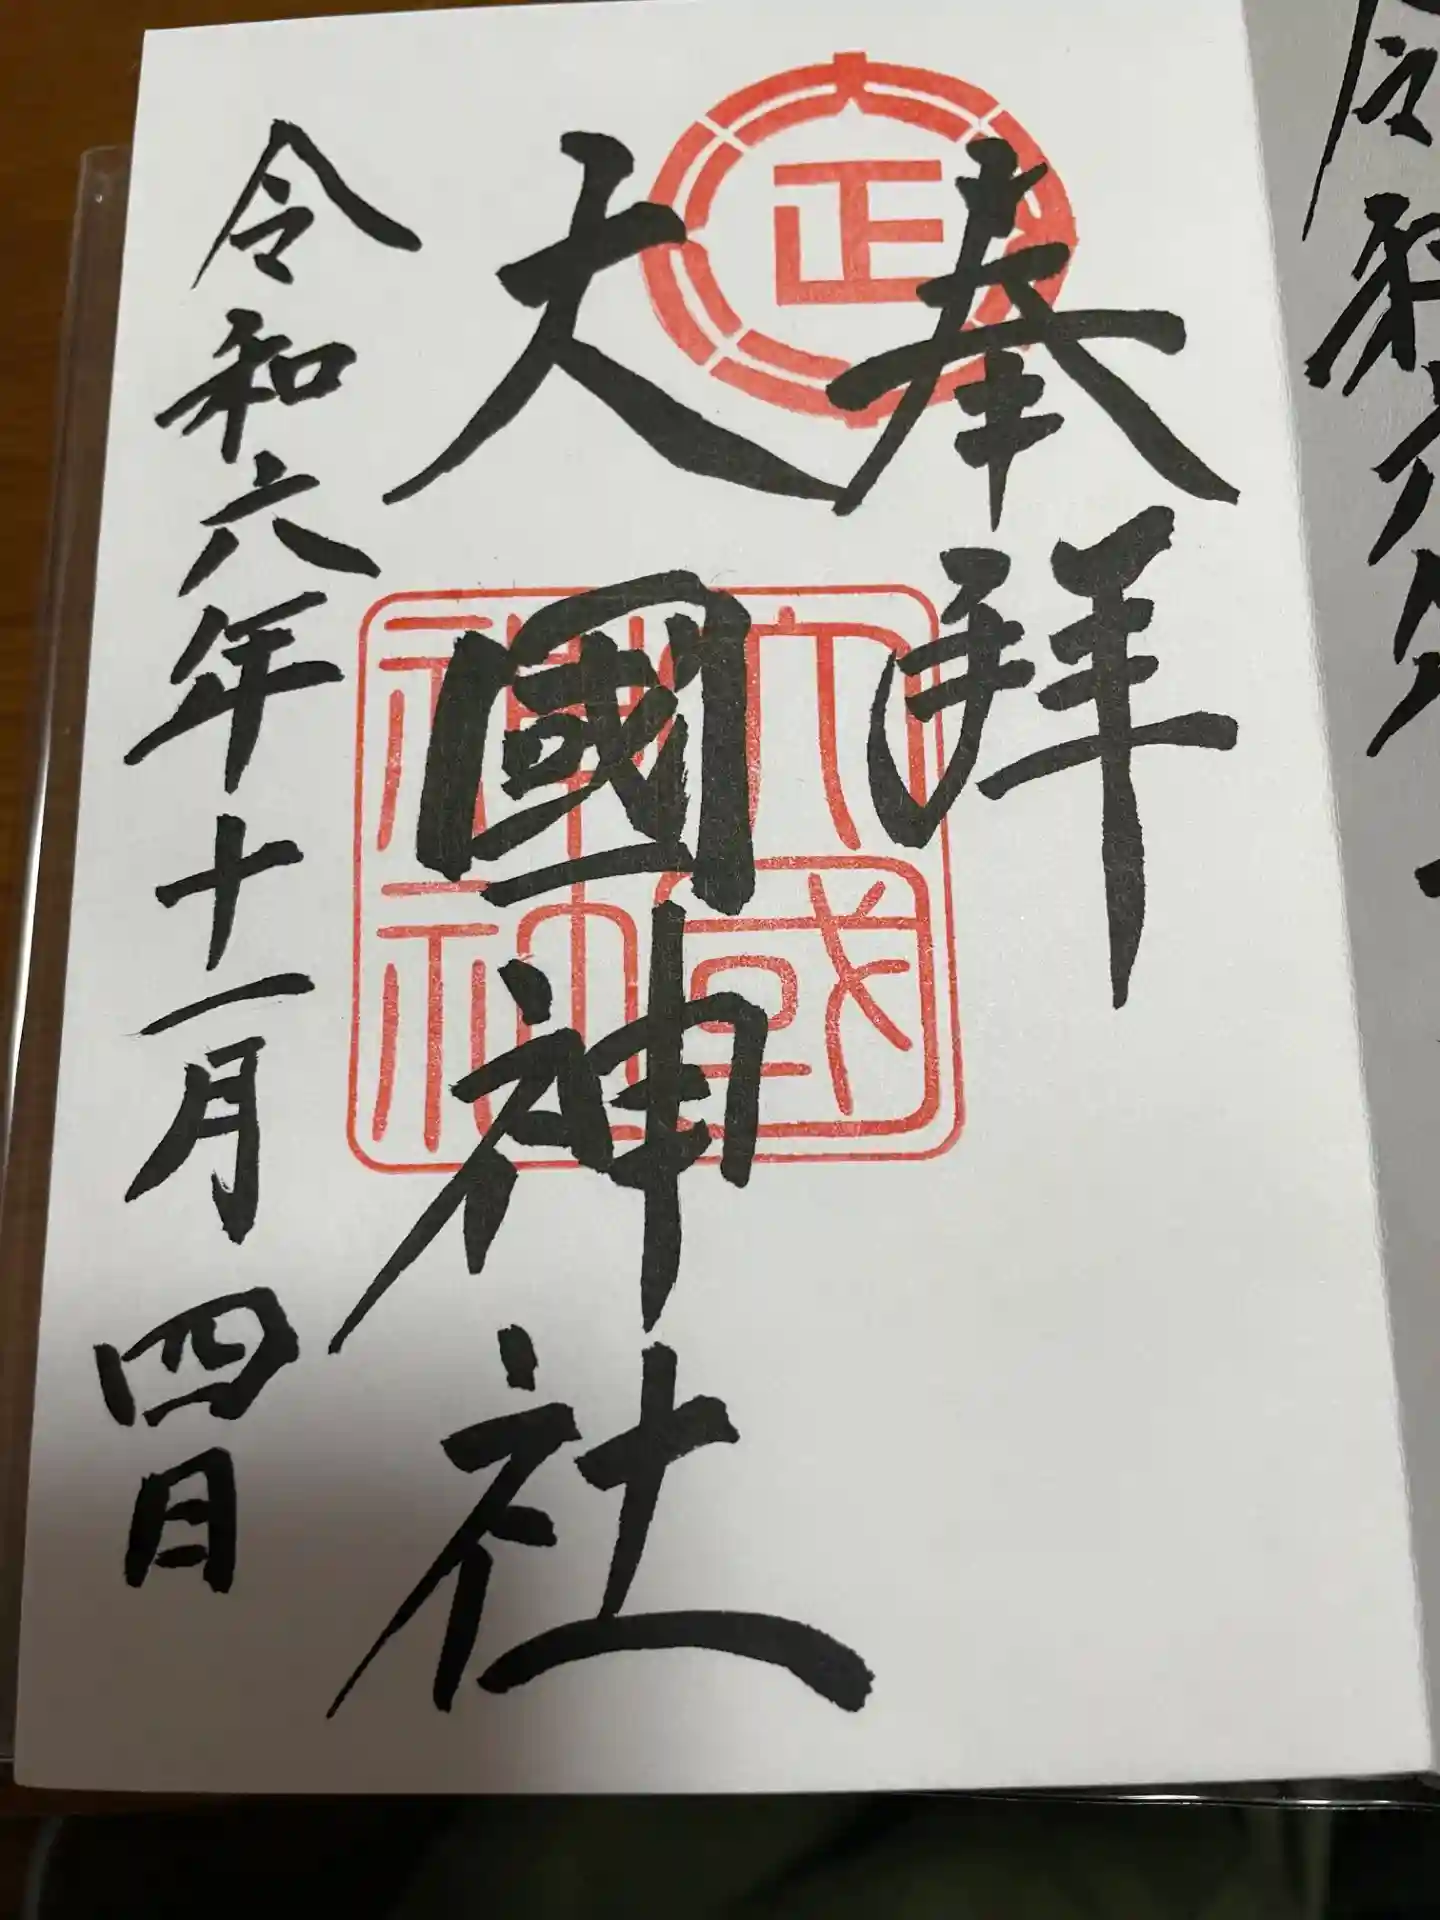 奉拝
大國神社
令和六年十一月四日
正
大國
神社
令和六年